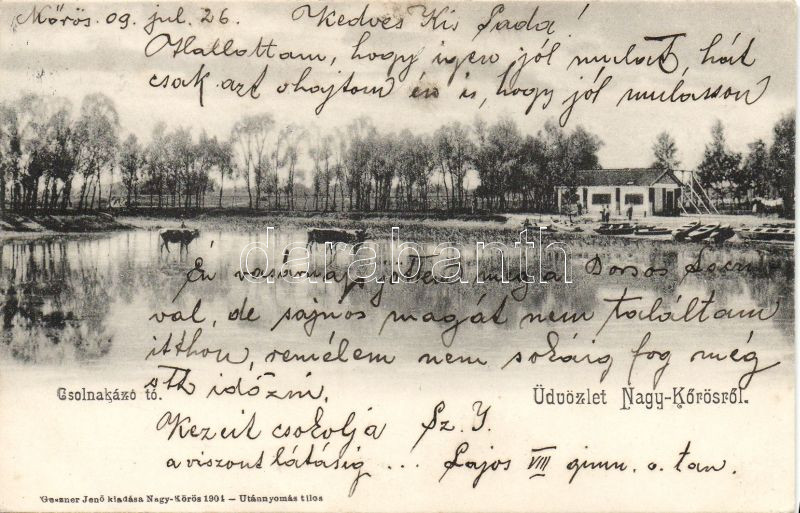 Kőrös. 09. jul. 26.
Kedves Kis Sada!
Hallottam, hogy igen jól mulat, hát
csak azt ohajtom én is, hogy jól mulasson
darabanth
Én vasárnap jöttem meg a Dorsos
val, de sajnos magát nem találtam
itthon, remélem nem sokáig fog még
ott időzni.
Csolnakázó tó.
Üdvözlet Nagy-Kőrösről.
Kezeit csokolja Sz. J.
a viszont látásig ... Lajos VIII gimn. o. tan.
Geszner Jenő kiadása Nagy-Kőrös 1904 — Utánnyomás tilos